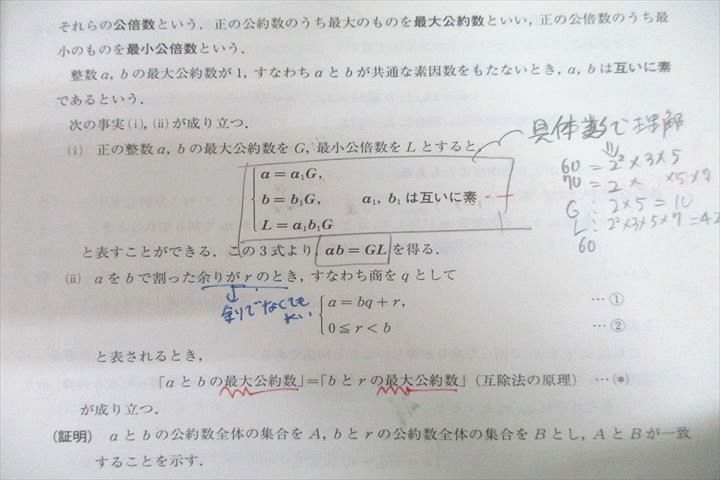 それらの公倍数という．正の公約数のうち最大のものを最大公約数といい，正の公倍数のうち最
小のものを最小公倍数という．
整数a, bの最大公約数が1, すなわちaとbが共通な素因数をもたないとき, a, bは互いに素
であるという．
次の事実(i), (ii)が成り立つ．
(i) 正の整数a, bの最大公約数をG, 最小公倍数をLとすると,
具体数で理解
a＝a₁G,
b＝b₁G, a₁, b₁は互いに素
L＝a₁b₁G
60 = 2²×3×5
70 = 2× ×5×7
G: 2×5 = 10
L: 2²×3×5×7 = 42
60
と表すことができる．この3式より ab＝GL を得る．
(ii) aをbで割った余りがrのとき, すなわち商をqとして
余りでなくても
よい
a＝bq＋r, …①
0≦r＜b …②
と表されるとき,
「aとbの最大公約数」＝「bとrの最大公約数」(互除法の原理) …(*)
が成り立つ．
(証明) aとbの公約数全体の集合をA, bとrの公約数全体の集合をBとし, AとBが一致
することを示す．